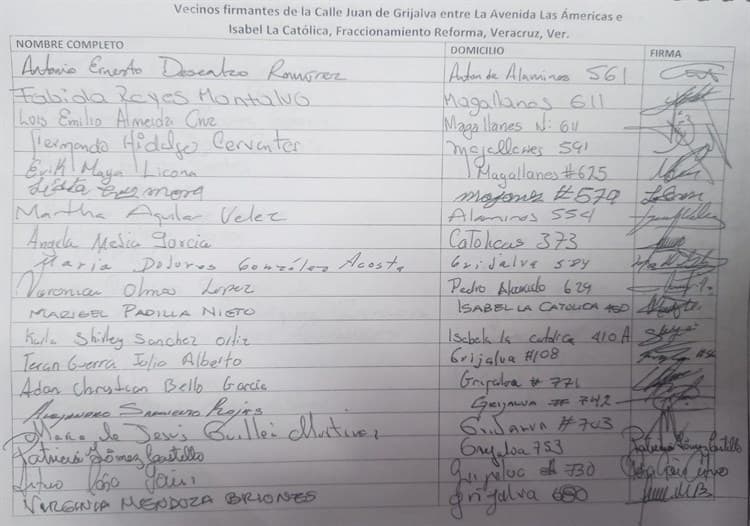 Vecinos firmantes de la Calle Juan de Grijalva entre La Avenida Las Ámericas e
Isabel La Católica, Fraccionamiento Reforma, Veracruz, Ver.
NOMBRE COMPLETO DOMICILIO FIRMA
Antonio Ernesto Desentzo Ramirez Anton de Alaminos 561
Fabiola Reyes Montalvo Magallanes 611
Luis Emilio Almeida Cruz Magallanes N: 611
Fernando Hidalgo Cervantes Magallanes 591
Erik Maya Licona Magallanes #625
Cruz Mora #579
Martha Aguilar Velez Alaminos 554
Angela Mejia Garcia Catolicas 373
Maria Dolores González Acosta Grijalva 584
Veronica Olmos Lopez Pedro Alvarado 629
MARISEL PADILLA NIETO ISABEL LA CATOLICA
Karla Shirley Sanchez Ortiz Isabela la catolica 410 A
Teran Guerra Julio Alberto Grijalva #108
Adan Christian Bello Garcia Grijalva # 771
Alejandro Sarmiento Rojas Grijalva # 742
Maria de Jesús Guillen Martinez Grijalva # 703
Patricia Gómez Castillo Grijalva 753 Patricia Gómez Castillo
Arturo 730
VIRGINIA MENDOZA BRIONES Grijalva MB